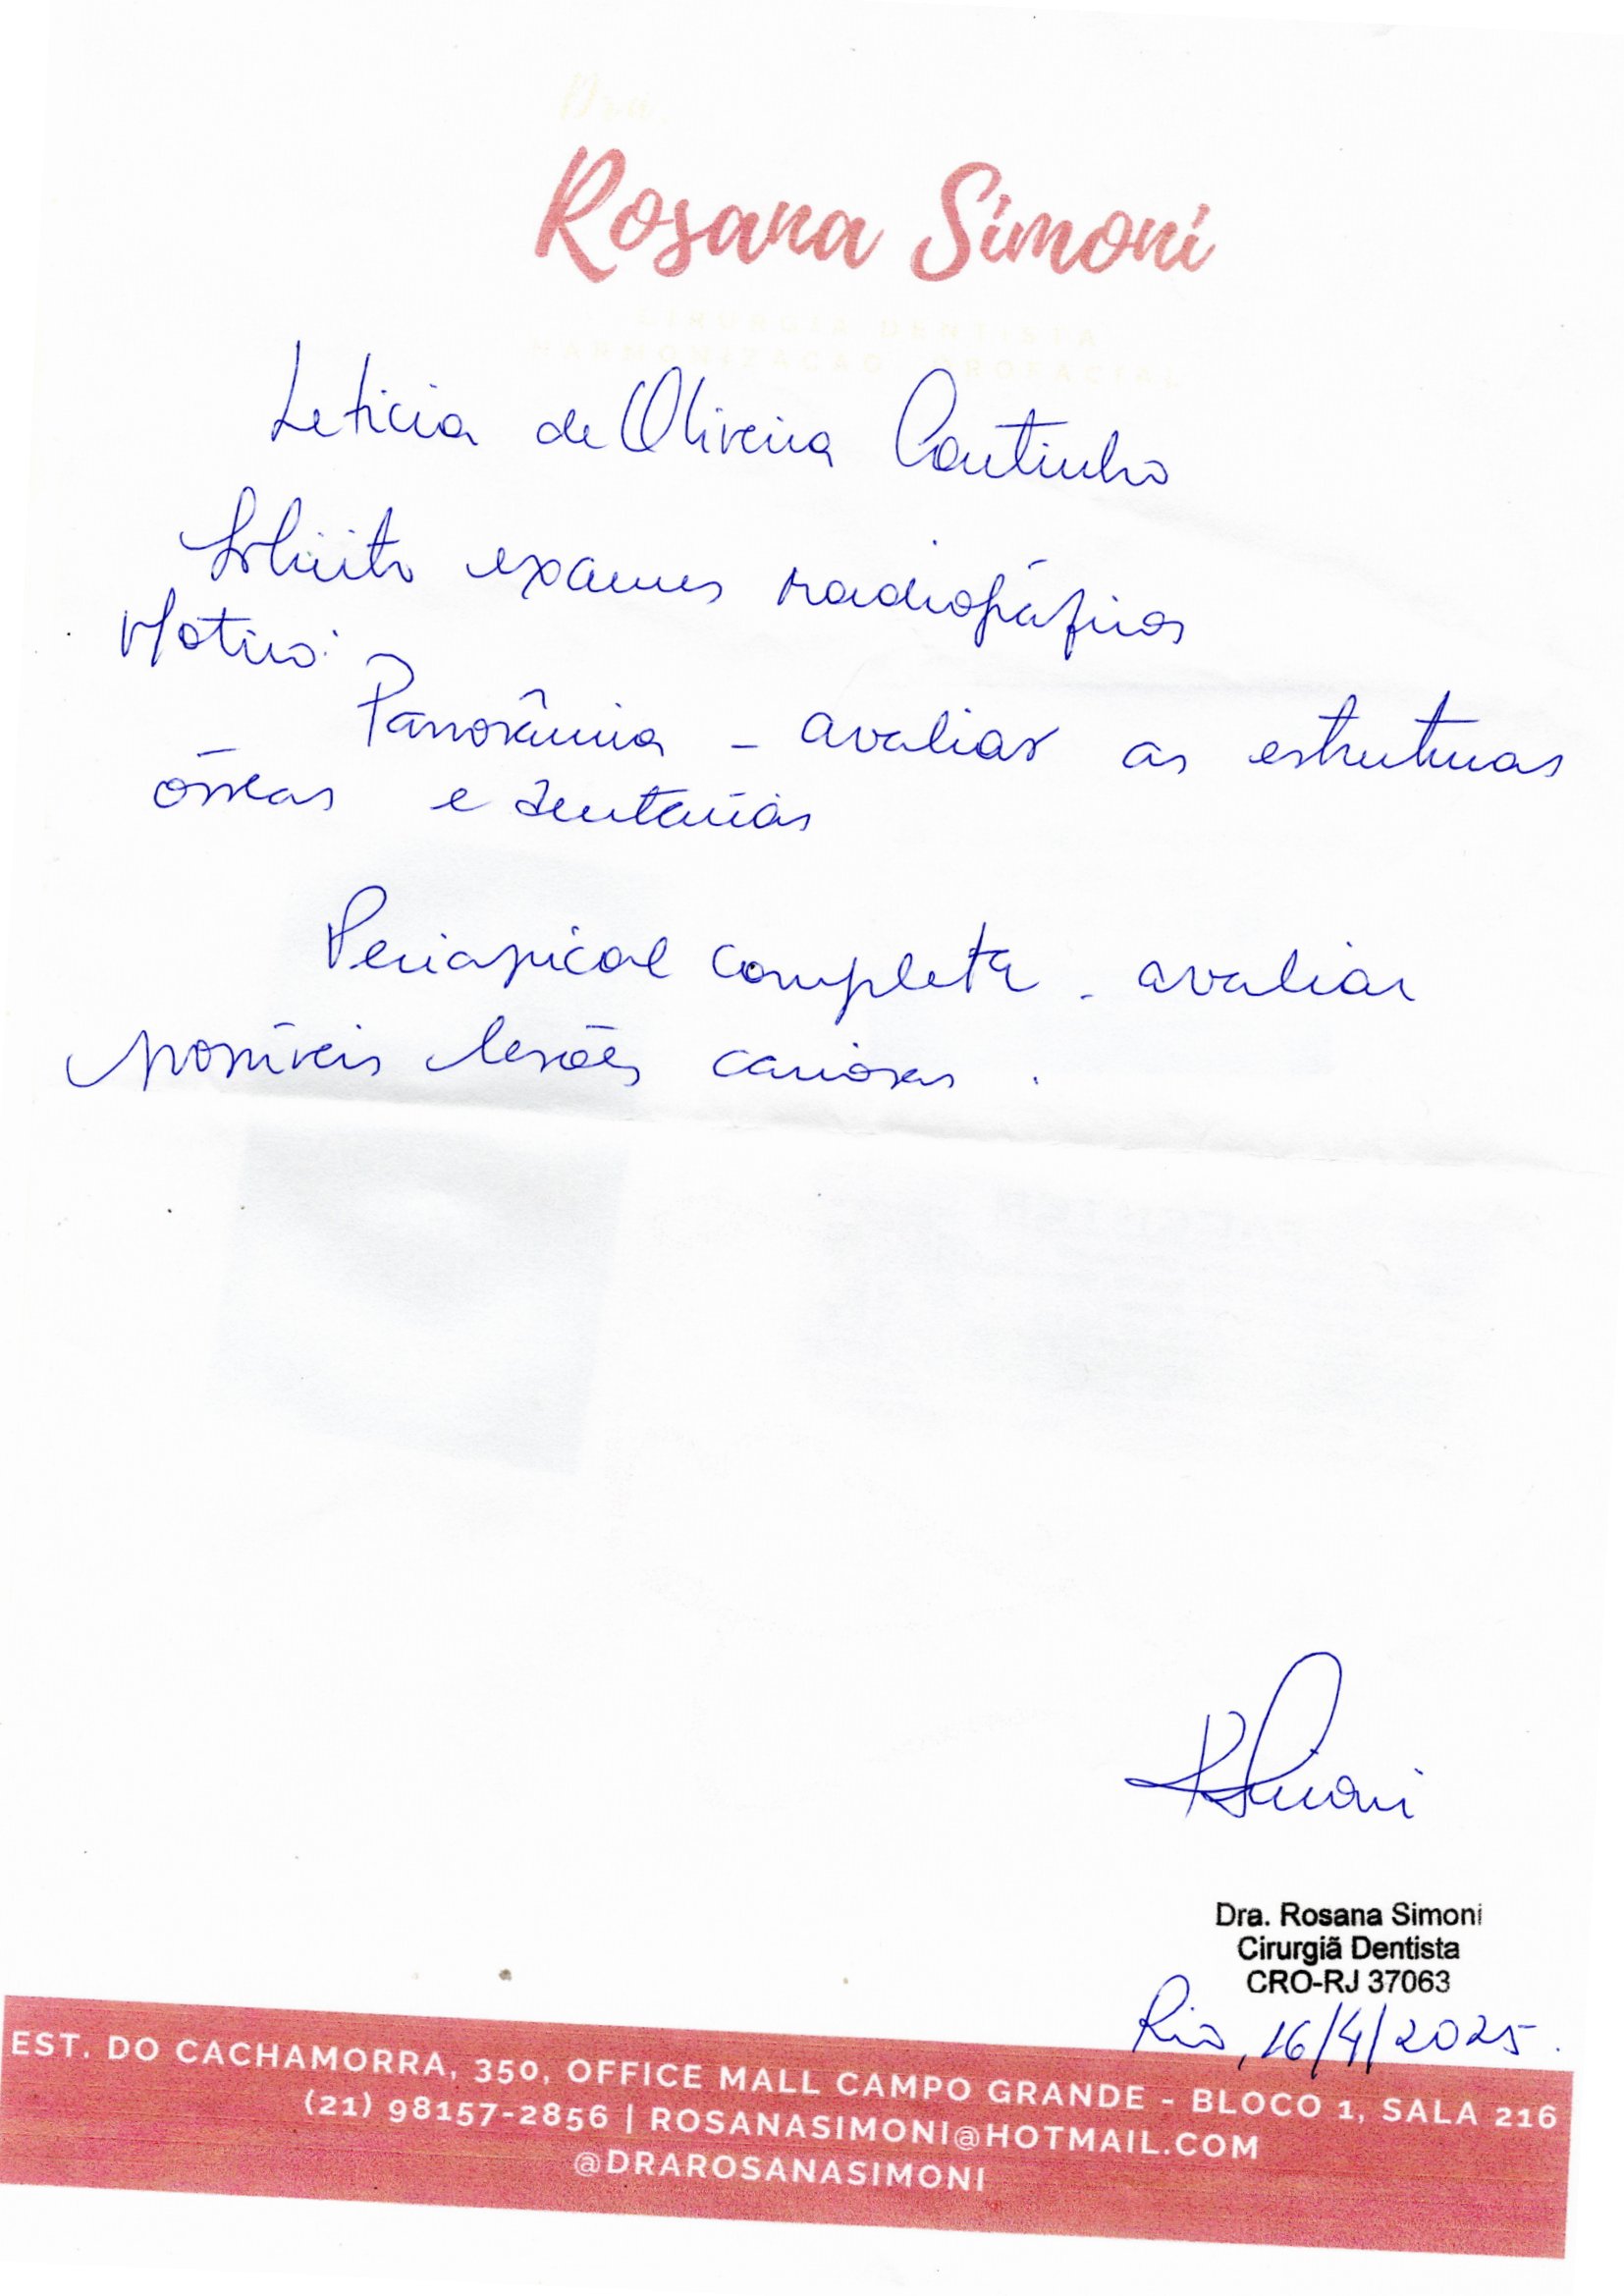 Dra.
Rosana Simoni
CIRURGIÃ DENTISTA
HARMONIZAÇÃO OROFACIAL
Leticia de Oliveira Coutinho
Solicito exames radiográficos
Motivo:
Panorâmica - avaliar as estruturas
ósseas e dentárias
Periapical completa - avaliar
possíveis lesões cariosas.
RSimoni
Dra. Rosana Simoni
Cirurgiã Dentista
CRO-RJ 37063
Rio, 16/4/2025.
EST. DO CACHAMORRA, 350, OFFICE MALL CAMPO GRANDE - BLOCO 1, SALA 216
(21) 98157-2856 | ROSANASIMONI@HOTMAIL.COM
@DRAROSANASIMONI